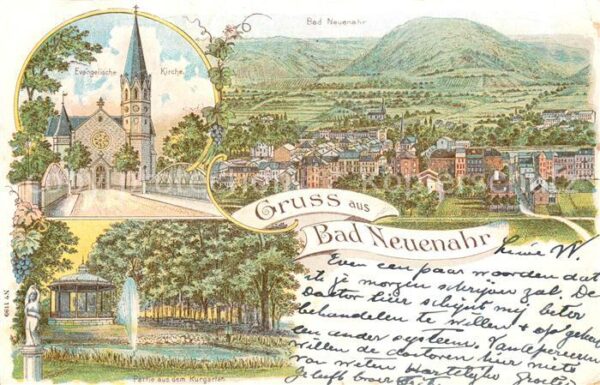 Bad Neuenahr
Evangelische Kirche.
Gruss aus
Bad Neuenahr
Partie aus dem Kurgarten.
No 1199
Lieve W.
Even een paar woorden dat
ik je morgen schrijven zal. De
Doctor hier schijnt mij beter
behandelen te willen + op
een ander systeem.
willen de doctoren hier niets
van weten Hartelijke Groeten